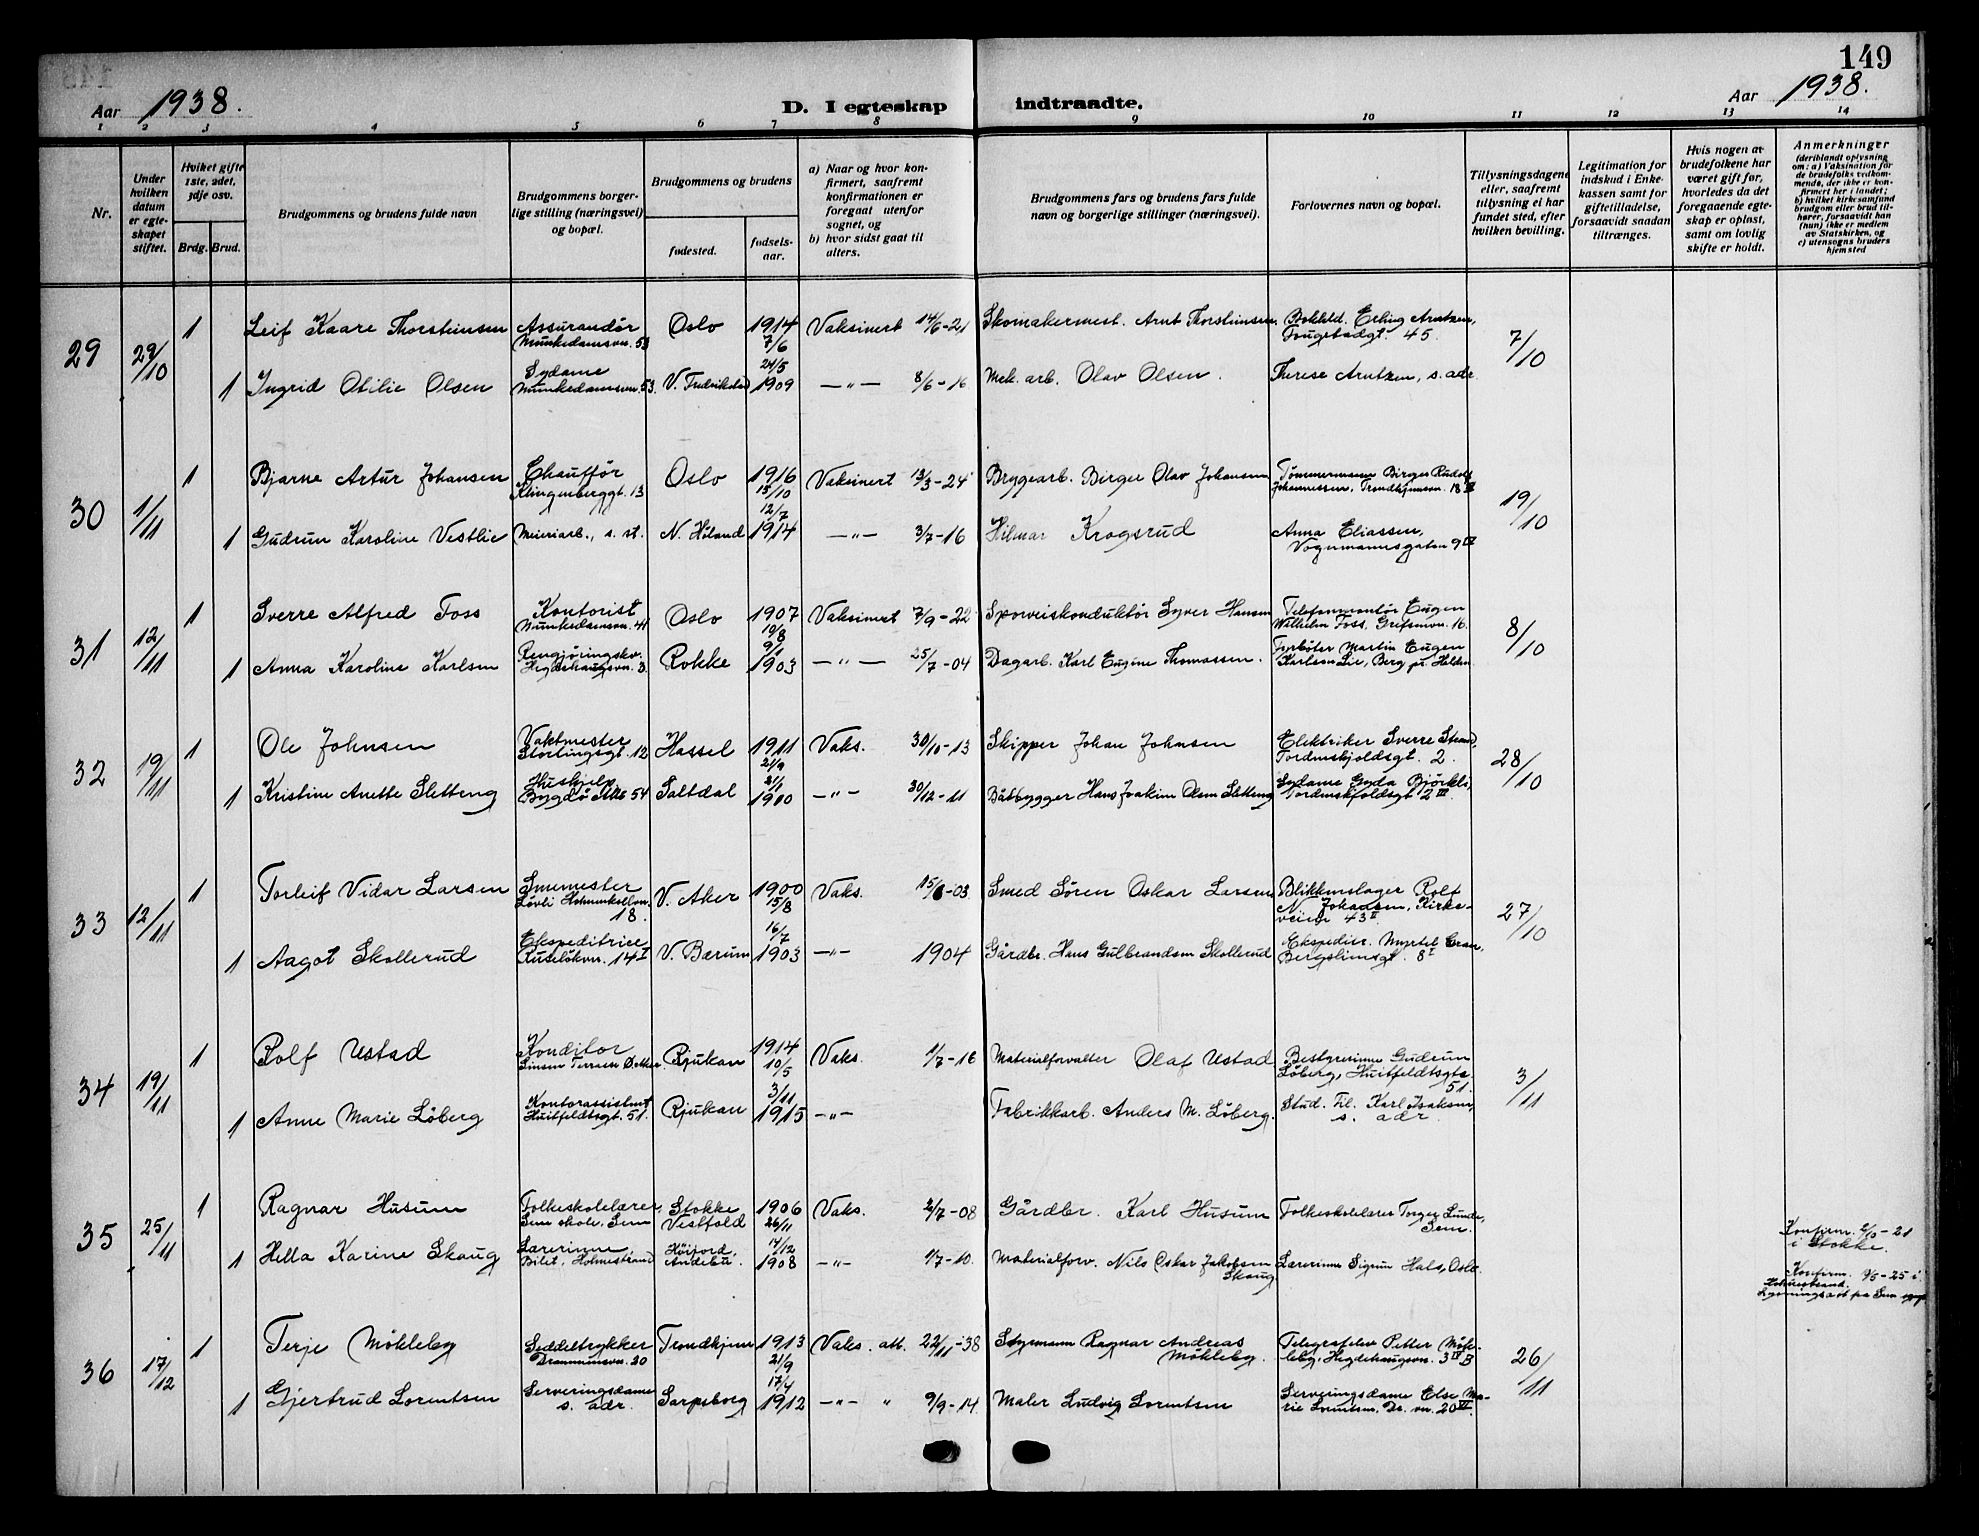 149
Aar 1938.
D. I egteskap indtraadte.
Aar 1938.
1 2 3 4 5 6 7 8 9 10 11 12 13 14
Nr.
Under hvilken datum er egteskapet stiftet.
Hvilket gifte 1ste, 2det, 3dje osv.
Brdg. Brud.
Brudgommens og brudens fulde navn
Brudgommens borgerlige stilling (næringsvei) og bopæl.
Brudgommens og brudens
fødested.
fødselsaar.
a) Naar og hvor konfirmert, saafremt konfirmationen er foregaat utenfor sognet, og
b) hvor sidst gaat til alters.
Brudgommens fars og brudens fars fulde navn og borgerlige stillinger (næringsvei).
Forlovernes navn og bopæl.
Tillysningsdagene eller, saafremt tillysning ei har fundet sted, efter hvilken bevilling.
Legitimation for indskud i Enkekassen samt for giftetilladelse, forsaavidt saadan tiltrænges.
Hvis nogen av brudefolkene har været gift før, hvorledes da det foregaaende egteskap er opløst, samt om lovlig skifte er holdt.
Anmerkninger
(deriblandt oplysning om: a) Vaksination for de brudefolks vedkommende, der ikke er konfirmert her i landet; b) hvilket kirkesamfund brudgom eller brud tilhører, forsaavidt han (hun) ikke er medlem av Statskirken, og c) utensogns bruders hjemsted
29 29/10 1 Leif Kaare Thorsteinsen Assurandør Munkedamsvn. 53 Oslo 1914 7/6 Vaksinert 14/6-21 Skomakermest. Arnt Thorsteinsen Bokhld. Erling Arntzen, Fougstadgt. 45. 7/10
1 Ingrid Otilie Olsen Sydame Munkedamsvn. 53. V. Fredrikstad 24/5 1909 —"— 8/6-16 Mek. arb. Olav Olsen. Therese Arntzen, s. adr.
30 1/11 1 Bjarne Artur Johansen Chauffør Klingenberggt. 13 Oslo 1916 15/10 Vaksinert 13/3-24 Bryggearb. Birger Olav Johansen Tømmermann Birger Rudolf Johannessen, Trondhjemsvn. 18 19/10
1 Gudrun Karoline Vestlie Meieriarb., s. st. N. Høland 12/7 1914 —"— 3/7-16 Hilmar Krogsrud Anna Eliassen, Vognmannsgaten 9
31 12/11 1 Sverre Alfred Foss Kontorist Munkedamsvn. 41 Oslo 1907 19/8 Vaksinert 7/9-22 Sporveiskonduktør Syver Hansen Telefonmontør Eugen Wilhelm Foss, Grefsenvn. 16. 8/10
1 Anna Karoline Karlsen Rengjøringskv. Hegdehaugsvn. 3. Rokke 9/1 1903 —"— 25/7-04 Dagarb. Karl Eugene Thomassen. Fyrbøter Martin Eugen Karlsen Lie, Berg pr. Halden
32 19/11 1 Ole Johnsen Vaktmester Stortingsgt. 12 Hassel 1911 21/9 Vaks. 30/10-13 Skipper Johan Johnsen Elektriker Sverre Strand, Tordenskjoldsgt. 2. 28/10
1 Kristine Anette Sletteng Hushjelp Bygdø Allé 54 Saltdal 31/1 1910 —"— 30/12-11 Båtbygger Hans Joakim Olsen Sletteng Sydame Gyda Bjørkli, Tordenskjoldsgt. 2 III.
33 12/11 1 Torleif Vidar Larsen Smemester Løvli Holmenkollvn. 18. V. Aker 1900 15/8 Vaks. 15/6-03 Smed Søren Oskar Larsen Blikkenslager Rolf N. Johansen, Kirkeveien 43 II 27/10
1 Aagot Skollerud Ekspeditrice Ruseløkvn. 14 I V. Bærum 16/7 1903 —"— 1904 Gårdbr. Hans Gulbrandsen Skollerud Ekspeditr. Myrtel Bergsliensgt. 8 I
34 19/11 1 Rolf Ustad Konditor Sinsen Terrasse Ø. Aker. Rjukan 1914 10/5 Vaks. 1/7-16 Materialforvalter Olaf Ustad Bestyrerinne Gudrun Løberg, Huitfeldtsgt. 51. 3/11
1 Anne Marie Løberg Kontorassistent Huitfeldtsgt. 51. Rjukan 3/11 1915 —"— Fabrikkarb. Anders M. Løberg. Stud. fil. Karl Isaksen, s. adr.
35 25/11 1 Ragnar Husum Folkeskolelærer, Sem skole, Sem Stokke Vestfold 1906 26/11 Vaks. 2/7-08 Gårdbr. Karl Husum Folkeskolelærer Torger Lunde, Sem. Konfirm. 2/10-21 i Stokke.
1 Hella Karine Skaug Lærerinne, Bilet, Holmestrand Høijord, Andebu. 14/12 1908 —"— 1/7-10. Materialforv. Nils Oskar Jakobsen Skaug Lærerinne Sigrun Hals, Oslo. Konfirm. 9/5-25 i Holmestrand. Lysningsatt fra Sem
36 17/12 1 Terje Møkleby Seddeltrykker Drammensvn. 20 Trondhjem 1913 21/9 Vaks. att. 22/11-38 Styrmann Ragnar Andreas Møkleby. Telegrafelev Petter Møkleby, Hegdehaugsvn. 3 IV B 26/11
1 Gjertrud Lorentsen Serveringsdame s. adr. Sarpsborg 17/4 1912 —"— " 9/9-14. Maler Ludvig Lorentsen Serveringsdame Else Marie Lorentsen, Dr. vn. 20 VI.